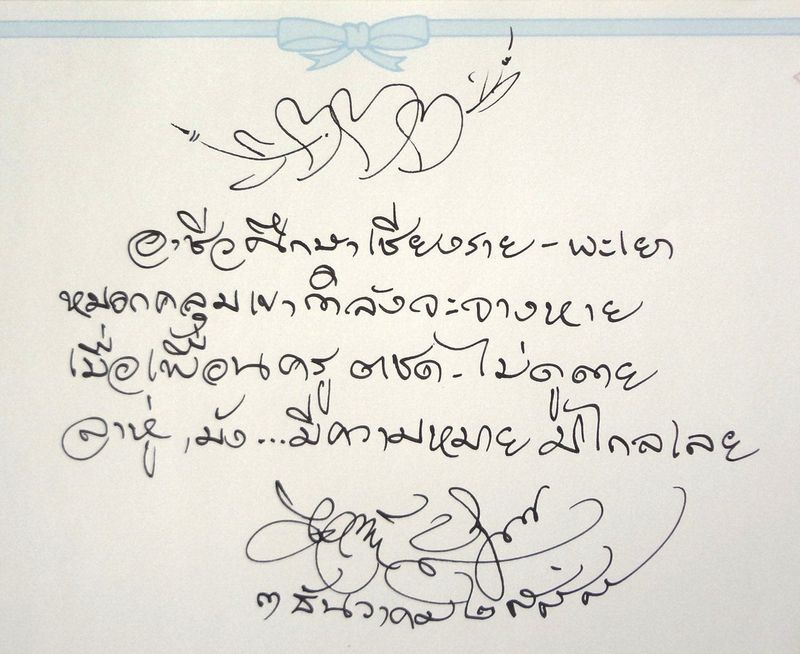 อาชีวศึกษาเชียงราย - พะเยา
หมอกคลุมเขากำลังจะจางหาย
เมื่อเพื่อนครู ตชด. ไม่ดูดาย
ลาหู่, ม้ง...มีความหมาย มิไกลเลย
๓ ธันวาคม ๒๕๕๕